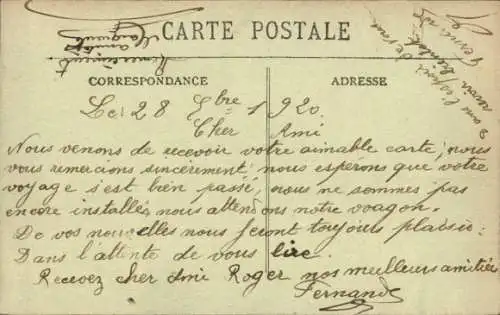 CARTE POSTALE
CORRESPONDANCE
ADRESSE
Le 28 7bre 1920
Cher Ami
Nous venons de recevoir votre aimable carte, nous
vous remercions sincèrement, nous espérons que votre
voyage s'est bien passé, nous ne sommes pas
encore installés, nous attendons notre wagon.
De vos nouvelles nous feront toujours plaisir.
Dans l'attente de vous lire.
Recevez cher Ami Roger nos meilleurs amitiés
Fernande